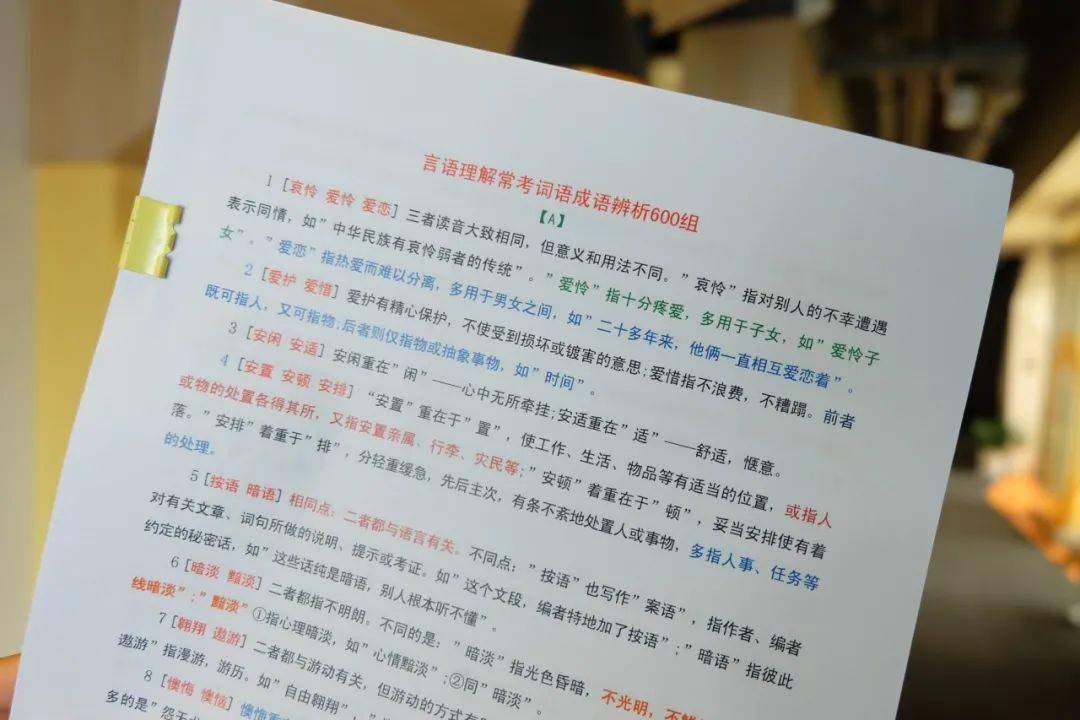 言语理解常考词语成语辨析600组
【A】
1［哀怜 爱怜 爱恋］三者读音大致相同，但意义和用法不同。”哀怜”指对别人的不幸遭遇
表示同情，如”中华民族有哀怜弱者的传统”。”爱怜”指十分疼爱，多用于子女，如”爱怜子
女”。”爱恋”指热爱而难以分离，多用于男女之间，如”二十多年来，他俩一直相互爱恋着”。
2［爱护 爱惜］爱护有精心保护，不使受到损坏或镀害的意思;爱惜指不浪费，不糟蹋。前者
既可指人，又可指物;后者则仅指物或抽象事物，如”时间”。
3［安闲 安适］安闲重在”闲”——心中无所牵挂;安适重在”适”——舒适，惬意。
4［安置 安顿 安排］“安置”重在于”置”，使工作、生活、物品等有适当的位置，或指人
或物的处置各得其所，又指安置亲属、行李、灾民等;”安顿”着重在于”顿”，妥当安排使有着
落。”安排”着重于”排”，分轻重缓急，先后主次，有条不紊地处置人或事物，多指人事、任务等
的处理。
5［按语 暗语］相同点：二者都与语言有关。不同点：”按语”也写作”案语”，指作者、编者
对有关文章、词句所做的说明、提示或考证。如”这个文段，编者特地加了按语”;”暗语”指彼此
约定的秘密话，如”这些话纯是暗语，别人根本听不懂”。
6［暗淡 黯淡］二者都指不明朗。不同的是：”暗淡”指光色昏暗，不光明，不
线暗淡”;”黯淡”①指心理暗淡，如”心情黯淡”;②同”暗淡”。
7［翱翔 遨游］二者都与游动有关，但游动的方式有
遨游”指漫游，游历。如”自由翱翔”，
8［懊悔 懊恼］懊悔重
多的是”怨天